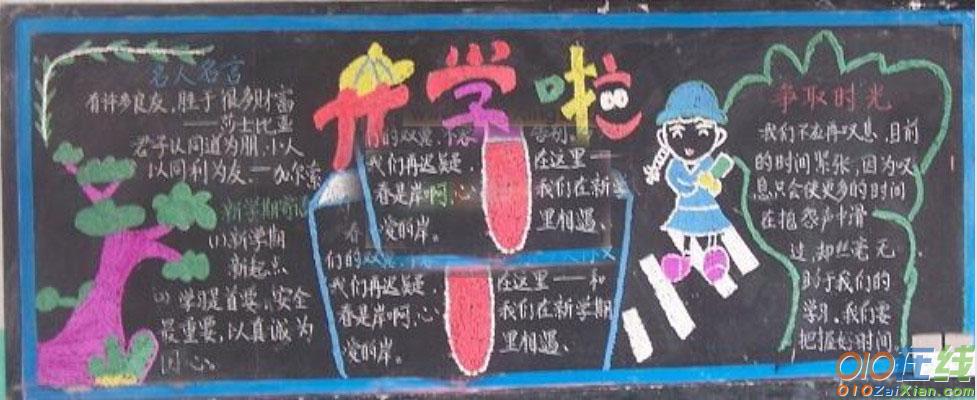 开学啦
名人名言
有许多良友，胜于很多财富
——莎士比亚
君子以同道为朋，小人
以同利为友。——
新学期寄语
(1)新学期
新起点
(2)学习是首要，安全
最重要，以真诚为
同心。
们的双翼，不容
我们再迟疑，
春是岸啊，心
爱的岸。
告别，
在这里——
我们在新学
里相遇、
春
们的双翼，
我们再迟疑，
春是岸啊，心
爱的岸。
在这里——和
我们在新学期
里相遇、
争取时光
我们不应再叹息，目前
的时间紧张，因为叹
息只会使更多的时间
在抱怨声中滑
过，却丝毫无
助于我们的
学习。我们要
把握好时间
010在线
010ZaiXian.com